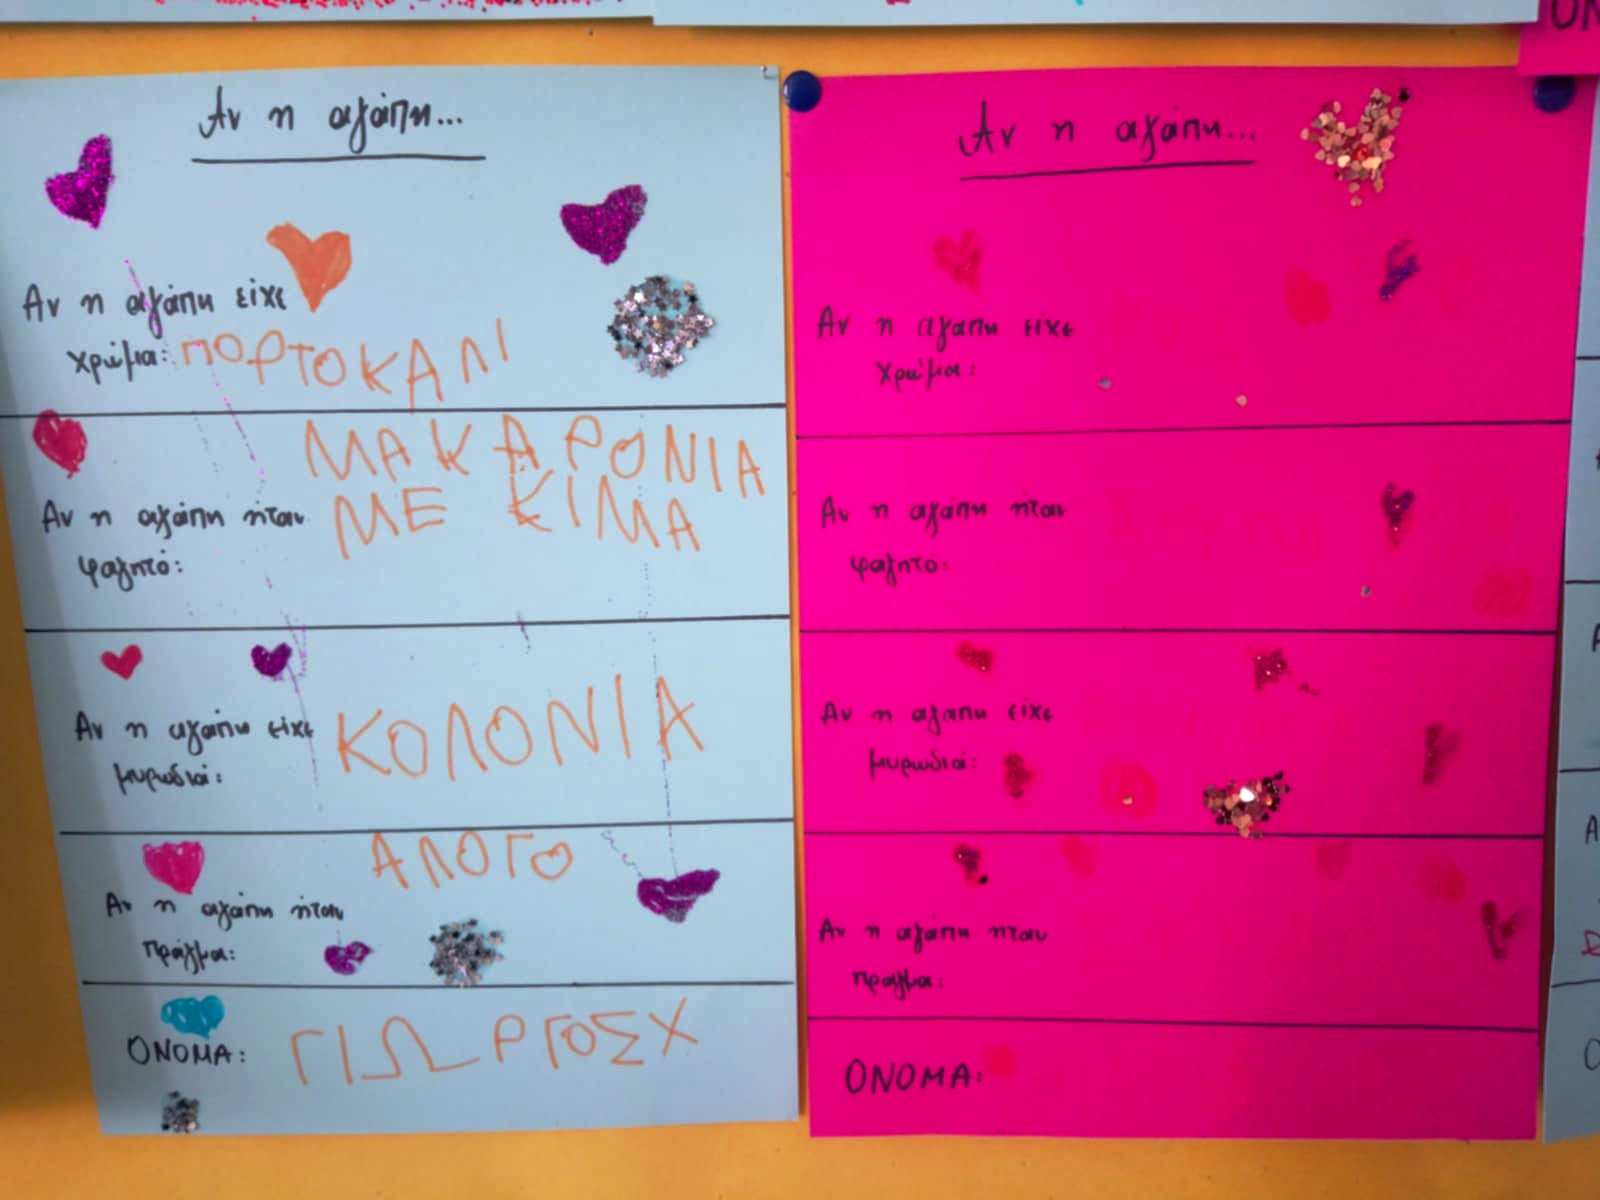 Αν η αγάπη...
Αν η αγάπη είχε
χρώμα: ΠΟΡΤΟΚΑΛΙ
ΜΑΚΑΡΟΝΙΑ
Αν η αγάπη ήταν ΜΕ ΚΙΜΑ
φαγητό:
Αν η αγάπη είχε ΚΟΛΟΝΙΑ
μυρωδιά:
ΑΛΟΓΟ
Αν η αγάπη ήταν
πράγμα:
ΟΝΟΜΑ: ΓΙΩΡΓΟΣΧ
Αν η αγάπη...
Αν η αγάπη είχε
χρώμα:
Αν η αγάπη ήταν
φαγητό:
Αν η αγάπη είχε
μυρωδιά:
Αν η αγάπη ήταν
πράγμα:
ΟΝΟΜΑ: